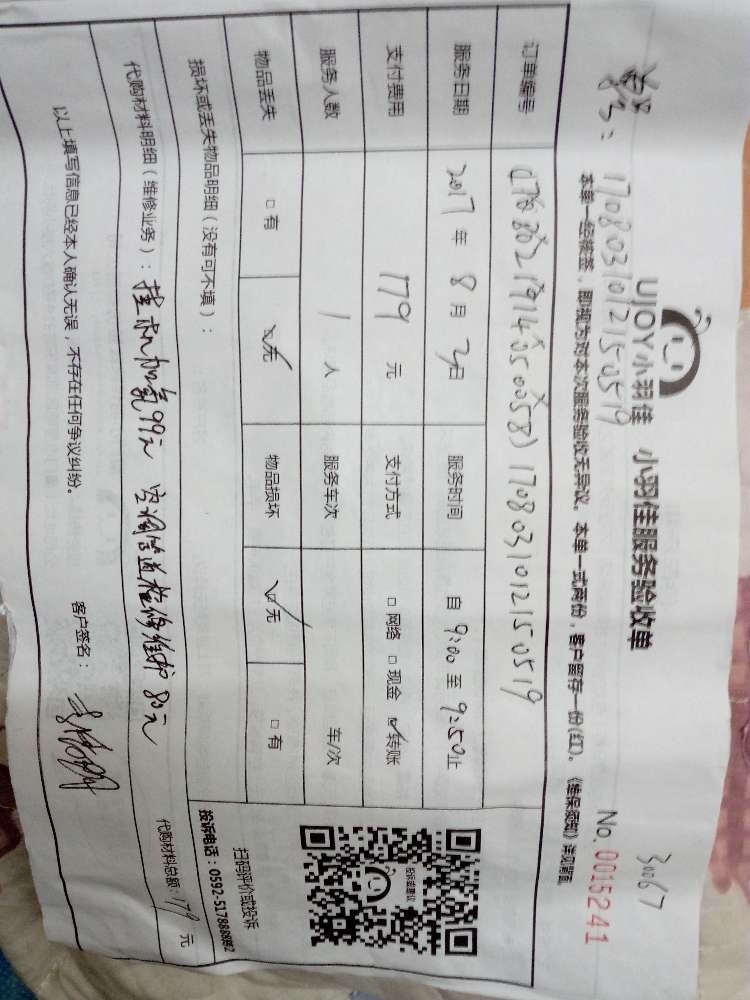 UJOY小羽佳 小羽佳服务验收单
30067
No. 0015241
170803101215 0519
本单一经签签，即视为对本次服务验收无异议。本单一式两份，客户留存一份(红)。《维保须知》详见背面
订单编号 170803101215 0519
服务日期 2017 年 8 月 3 日 服务时间 自 9:00 至 9:50 止
支付费用 179 元 支付方式 □ 网络 □ 现金 ☑ 转账
服务人数 1 人 服务车次 车/次
物品丢失 □ 有 ☑ 无 物品损坏 ☑ 无 □ 有
损坏或丢失物品明细（没有可不填）：
代购材料明细（维修业务）：挂机加氟99元 空调管道检修维护 80元
代购材料总额：179 元
以上填写信息已经本人确认无误，不存在任何争议纠纷。
客户签名：
投诉或建议
扫码评价或投诉
投诉电话：0592-5178888转2